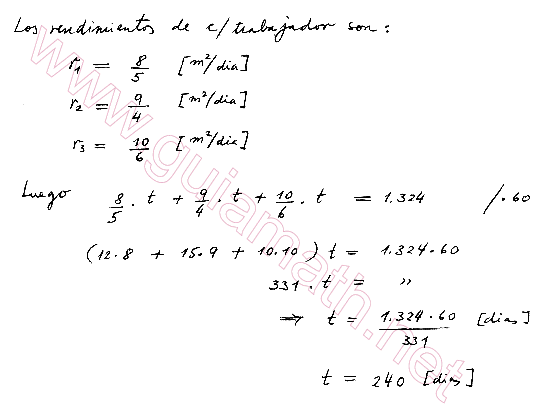 Los rendimientos de c/trabajador son:
r₁ = 8/5 [m²/dia]
r₂ = 9/4 [m²/dia]
r₃ = 10/6 [m²/dia]
Luego 8/5 · t + 9/4 · t + 10/6 · t = 1.324 /·60
(12·8 + 15·9 + 10·10) t = 1.324·60
331 · t = "
⇒ t = 1.324·60/331 [dias]
t = 240 [dias]
www.guiamath.net